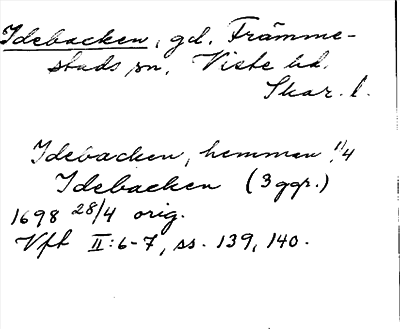 Idebacken, gd. Främme-
stads sn, Viste hd.
Skar. l.
Idebacken, hemman, 1/4
Idebacken (3 ggr.)
1698 28/4 orig.
Vft II:6-7, ss. 139, 140.